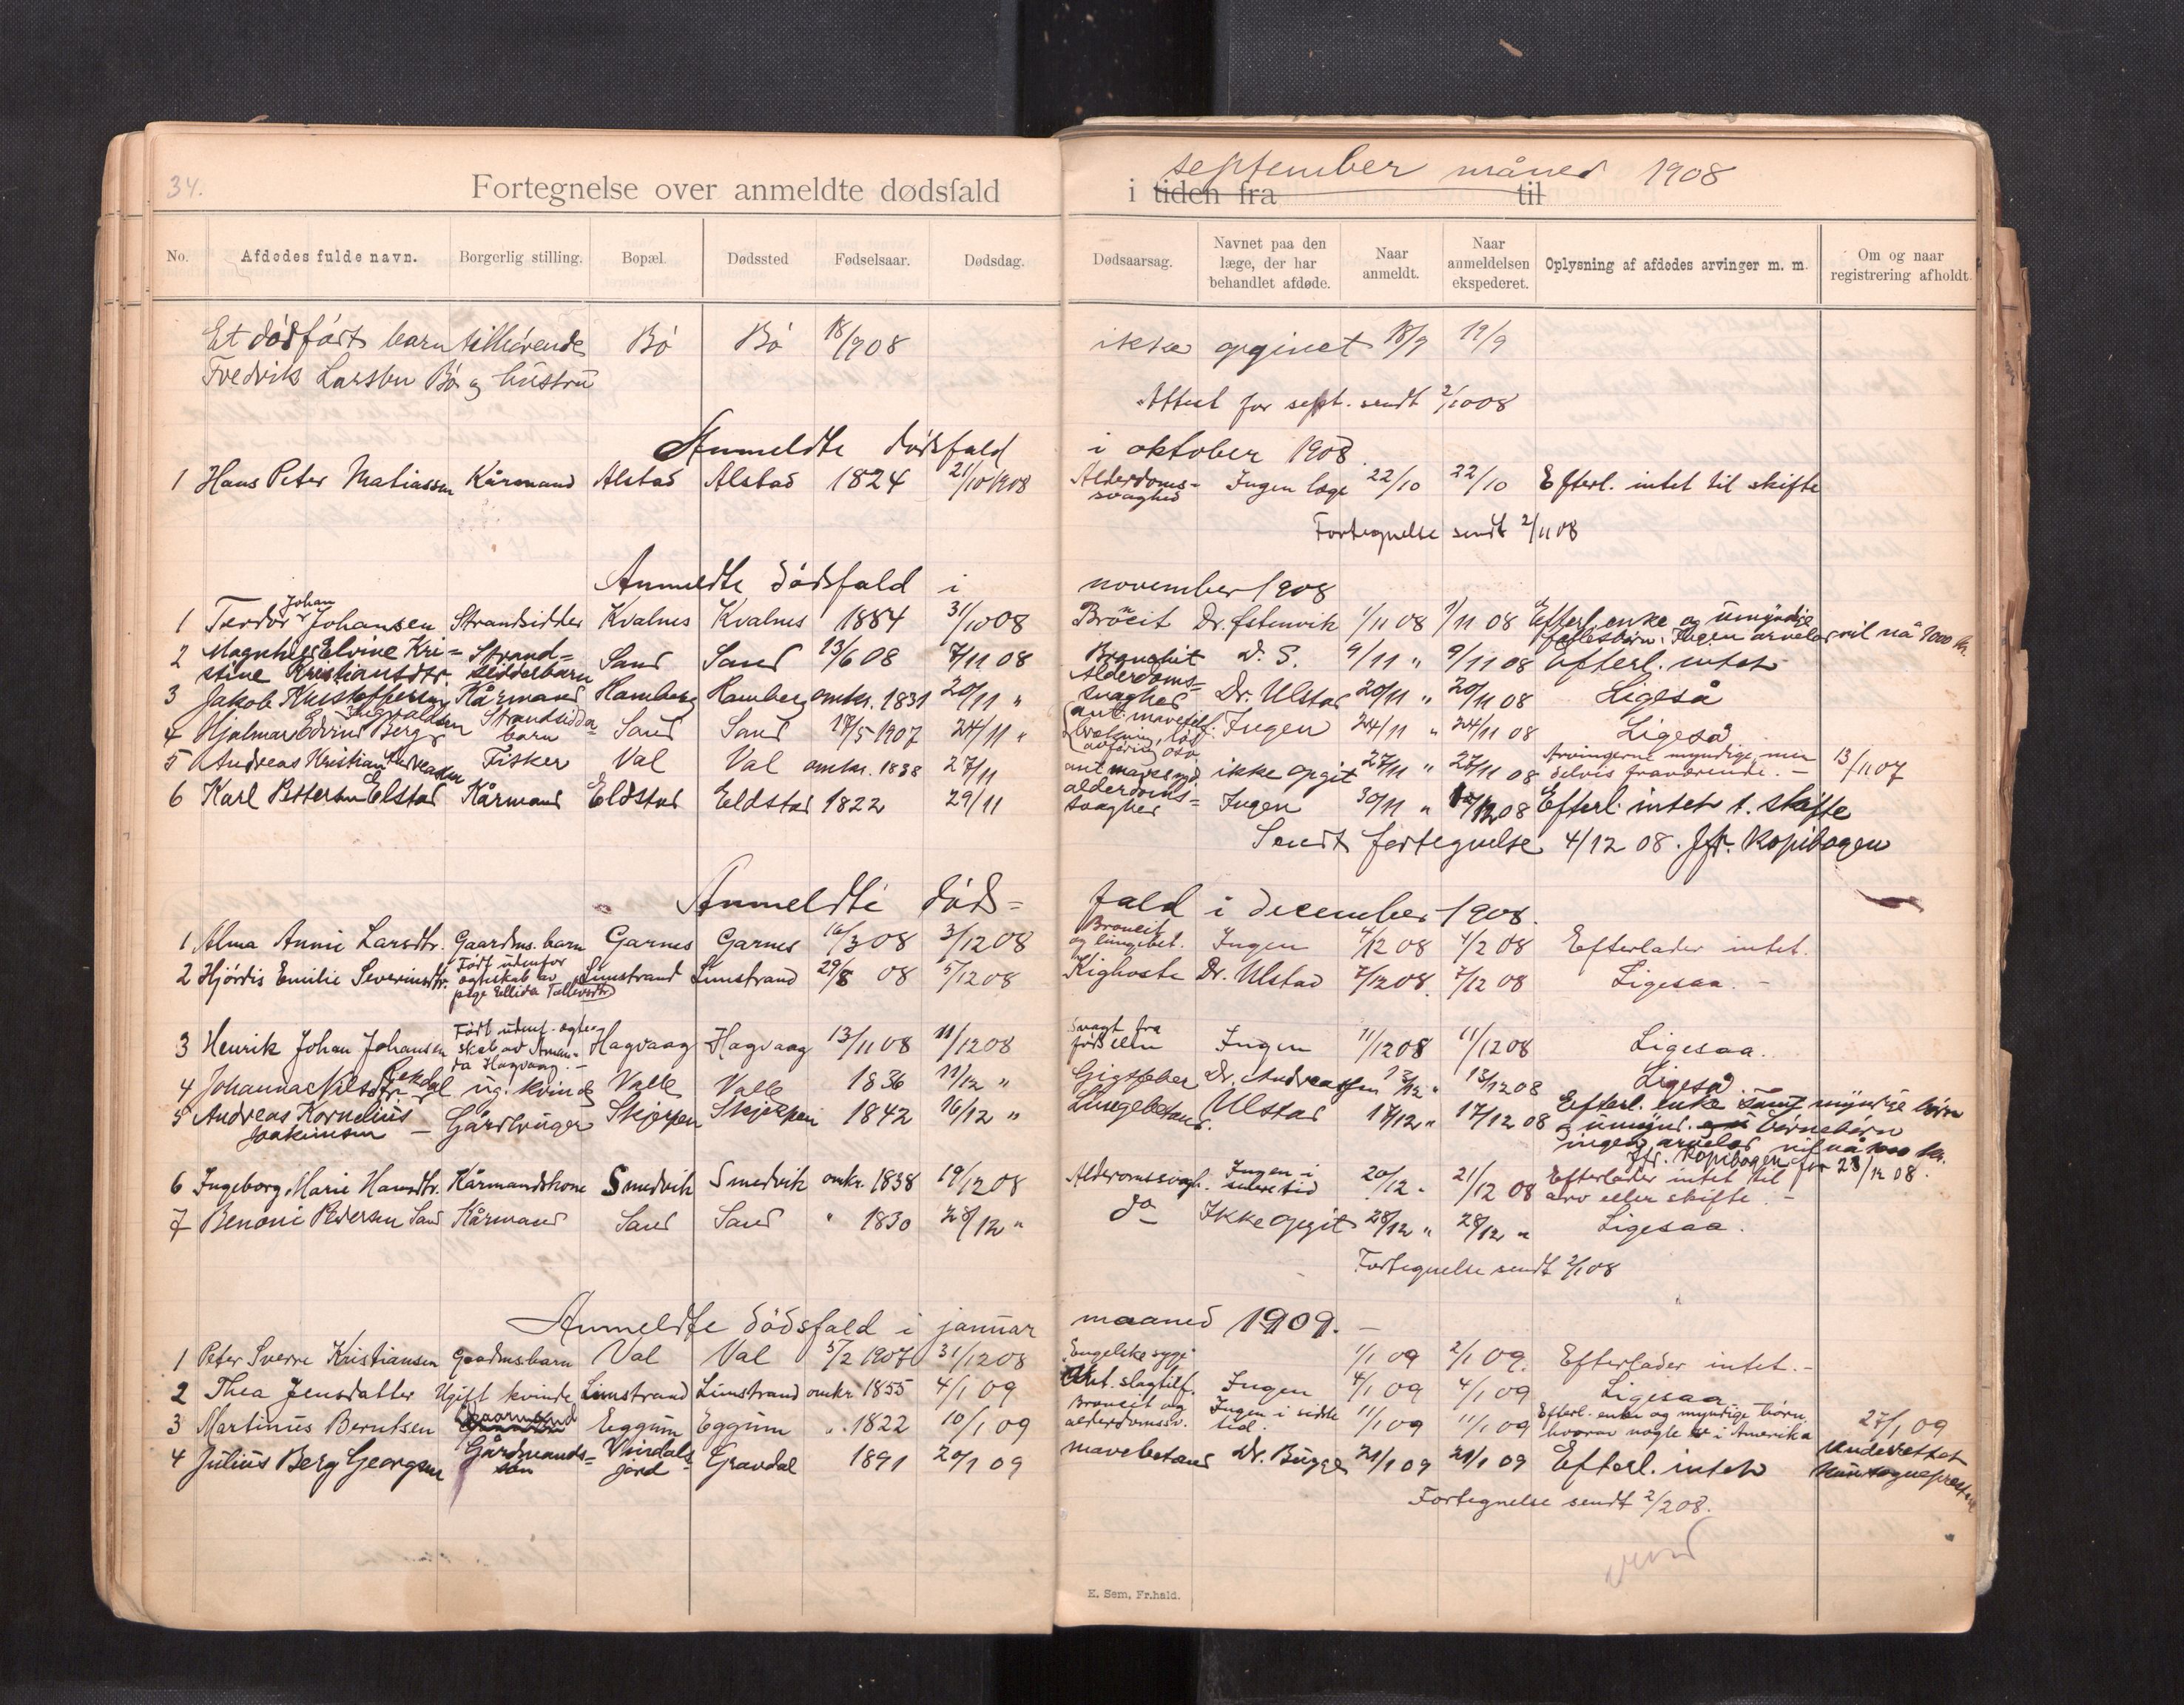 34.
Fortegnelse over anmeldte dødsfald i tiden fra til
september måned 1908
No. Afdødes fulde navn. Borgerlig stilling. Bopæl. Dødssted Fødselsaar. Dødsdag. Dødsaarsag. Navnet paa den læge, der har behandlet afdøde. Naar anmeldt. Naar anmeldelsen ekspederet. Oplysning af afdødes arvinger m. m. Om og naar registrering afholdt.
Et dødfødt barn tilhørende Bö Bö 18/908 ikke opgivet 18/9 19/9
Fredrik Larsen Bö og hustru
Attest for sept. sendt 2/1008
Anmeldte dödsfald i oktober 1908
1 Hans Peter Matiassen Kårmand Alstad Alstad 1824 21/10 1908 Alderdoms- svaghed Ingen læge 22/10 22/10 Efterl. intet til skifte
Fortegnelse sendt 2/11 08
Anmeldte dödsfald i november 1908
1 Teodor Johan Johansen Strandsidder Kvalnes Kvalnes 1884 31/1008 Dr. 1/11 08 1/11 08 Efterl. enke og umyndige
fellesbörn. Ingen arvelod vil nå 1000 kr.
2 Elvine Kri- Strand- Sand Sand 13/6 08 7/11 08 D. S. 9/11 " 9/11 08 Efterl. intet
stine Kristiansdtr. sidderbarn
3 Jakob Kristoffersen Kårmand Ramberg Ramberg omkr. 1831 20/11 " Alderdoms- svaghed Dr. Ulstad 20/11 " 20/11 08 Ligeså
4 Hjalmar Edvind Berg Ingvaldsen Strandsidder- barn Sand Sand 17/5 1907 24/11 " Ingen 24/11 " 24/11 08 Ligeså
5 Andreas Kristian Andreassen Fisker Val Val omkr. 1838 27/11 ant. mavesyg ikke opgit 27/11 " 27/11 08 Arvingerne myndige, men delvis fraværende. – 13/11 07
6 Karl Pettersen Elstad Kårmand Eldstad Eldstad 1822 29/11 alderdoms- svaghed Ingen 30/11 " 08 Efterl. intet t. skifte
Sendt fortegnelse 4/12 08. Jfr. Kopibogen
Anmeldte döds- fald i december 1908.
1 Alma Annie Larsdtr. Gaardms. barn Garnes Garnes 16/3 08 3/12 08 Broncit og lungebet. Ingen 4/12 08 4/2 08 Efterlader intet.
2 Hjördis Emilie Severinsdtr. Født udenfor ægteskab av pige Ellida Limstrand Limstrand 29/8 08 5/12 08 Kighoste Dr. Ulstad 7/12 08. 7/12 08 Ligesaa. –
3 Henrik Johan Johansen Født udenf. ægte- skab av Aman- da Hagvaag. – Hagvaag Hagvaag 13/11 08 11/12 08 Svagt fra födselen Ingen 11/12 08 11/12 08 Ligesaa.
4 Johanna Nilsdtr. ug. kvinde Valle Valle 1836 11/12 " Gigtfeber Dr. Andreassen 13/12 " 13/12 08 Ligeså
5 Andreas Kornelius Joakimsen – Gårdbruger Skjerpen Skjerpen 1842 16/12 " Lungebetænd. Ulstad 17/12 " 17/12 08 Efterl. enke samt myndige börn
& umynd. börnebörn
ingen arvelod vil nå 1000 kr.
Jfr. Kopibogen for 23/12 08.
6 Ingeborg Marie Hansdtr. Kårmandskone Smedvik Smedvik omkr. 1838 19/12 08 Alderomssvagh. Ingen i senere tid 20/12 - 21/12 08 Efterlader intet til arv eller skifte. –
7 Benoni Pedersen Sand Kårmand Sand Sand " 1830 28/12 " do Ikke opgit 28/12 " 28/12 " Ligesaa.
Fortegnelse sendt 2/1 08
Anmeldte dödsfald i januar maaned 1909. –
1 Peter Sverre Kristiansen Gaardmsbarn Val Val 5/2 1907 31/12 08 Engelske syge 1/1 09 2/1 09. Efterlader intet. –
2 Thea Jensdatter Ugift kvinde Limstrand Limstrand omkr. 1855 4/1 09 Ant. slagtilf. Ingen 4/1 09 4/1 09 Ligesaa
3 Martinus Berntsen Eggum Eggum " 1822 10/1 09 Broncit og alderdomssv. Ingen i sidste tid. 11/1 09 11/1 09 Efterl. enke og myndige börn hvorav nogle er i Amerika 25/1 09
4 Julius Berg Georgsen Gårdmands- sön Gravdal 1891 20/1 09 mavebetænd Dr. Bugge 21/1 09 21/1 09 Efterl. intet Underrettet
Fortegnelse sendt 2/2 08.
vend
E. Sem, Fr.hald.